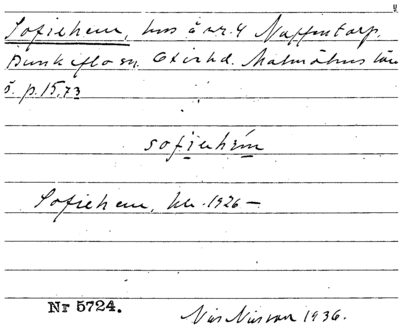 Sofiehem, hus å nr. 4 Naffentorp,
Bunkeflo sn. Oxie hd. Malmöhus län
ö. p. 15,73
sofiehém
Sofiehem, hl. 1926 –
Nr 5724.
Nils Nilsson 1936.